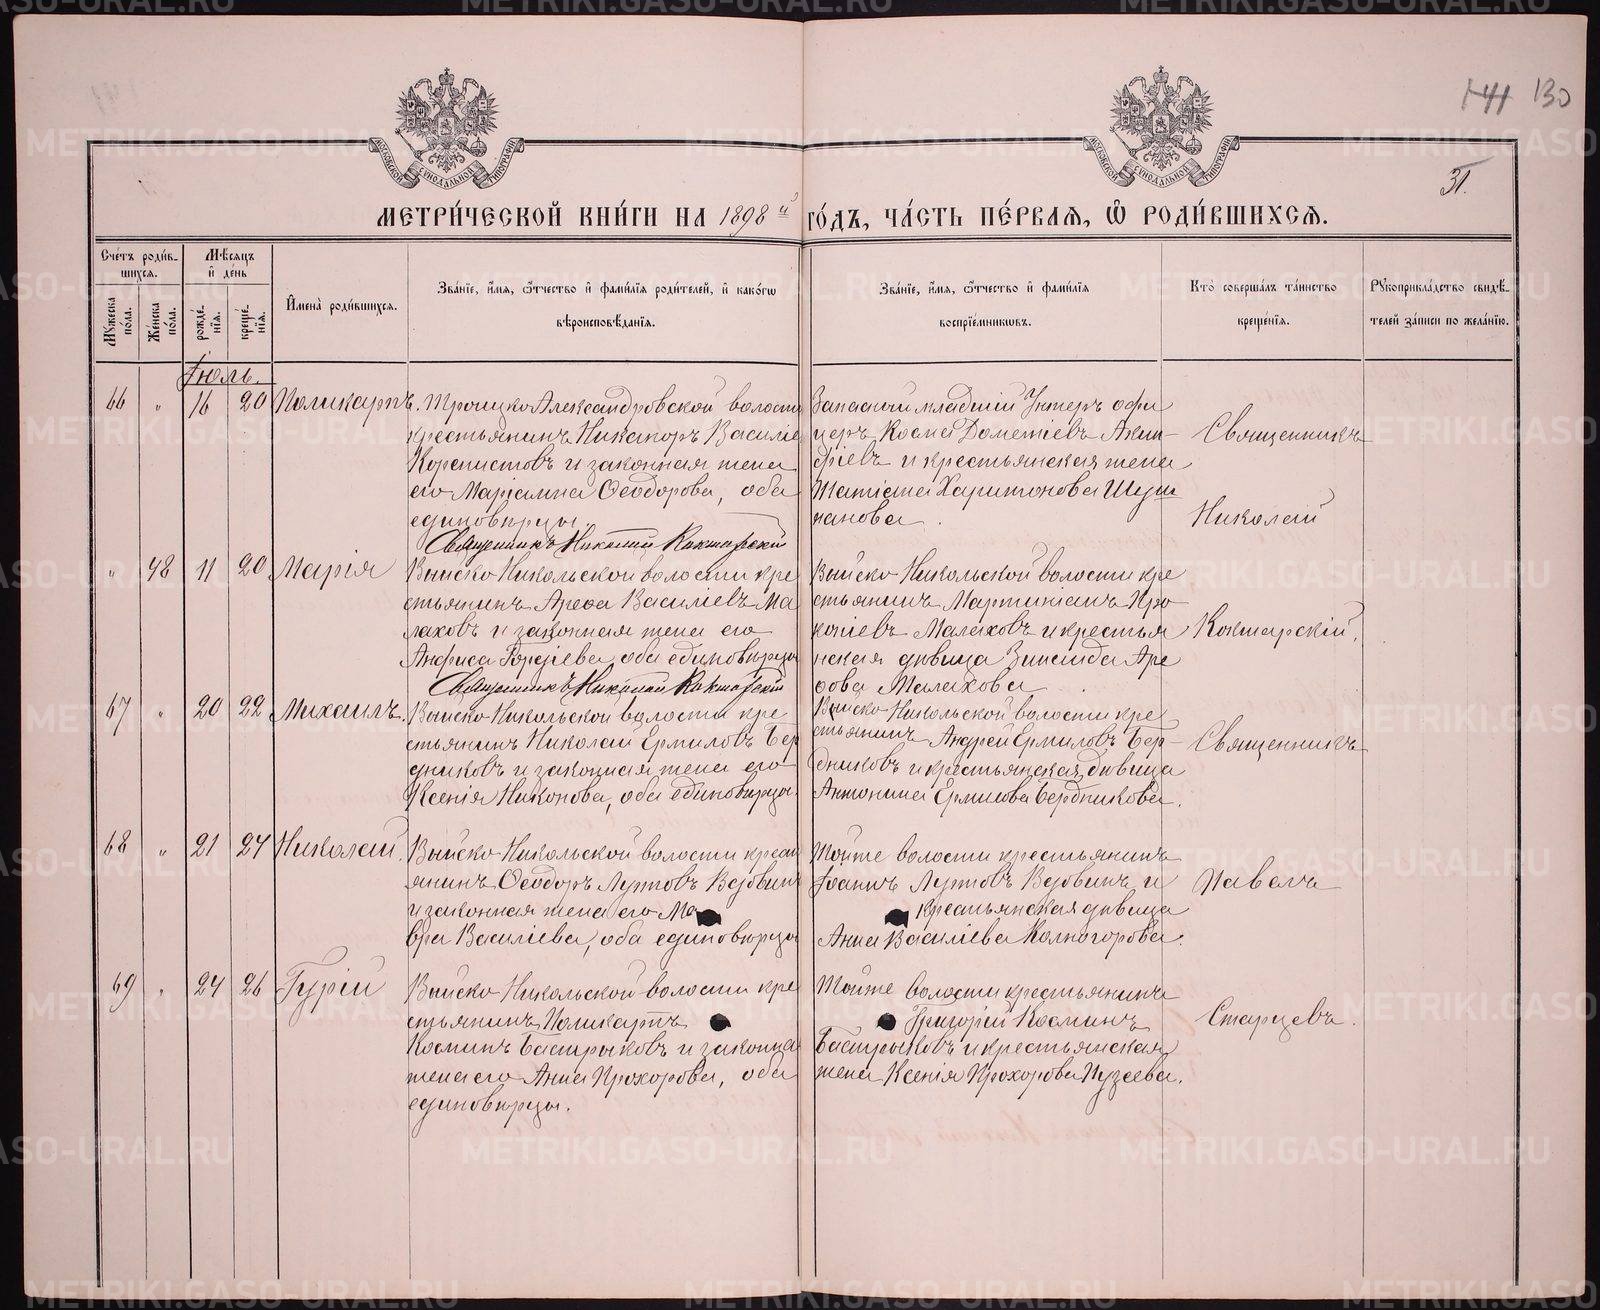 141 130
31.
МЕТРИ́ЧЕСКОЙ КНИ́ГИ НА 1898й ГО́ДЪ, ЧА́СТЬ ПЕ́РВАЯ, Ѡ҆ РОДИ́ВШИХСЯ.
Сче́тъ роди́в-
шихся.
Му́жеска по́ла.
Же́нска по́ла.
Мѣ́сяцъ и҆ де́нь
рожде́-
нїя.
креще́-
нїя.
И҆мена̀ роди́вшихся.
Зва́нїе, и҆́мя, ѻ҆́тчество и҆ фами́лїя роди́телей, и҆ како́гѡ
вѣроисповѣ́данїя.
Зва́нїе, и҆́мя, ѻ҆́тчество и҆ фами́лїя
воспрїе́мниковъ.
Кто̀ соверша́лъ та́инство
креще́нїя.
Рꙋкоприкла́дство свидѣ́-
телей за́писи по жела́нїю.
Іюль.
66 " 16 20 Поликарпъ.
Троицко Александровской волости
крестьянинъ Никаноръ Василіе
Корепистовъ и законная жена
его Маріамна Ѳеодорова, оба
единоверцы.
Священникъ Николай Кокшарскій
Запасный младшій Унтеръ офи
церъ Косма Дометіевъ
и крестьянская жена
Татіана Харитонова
Священникъ
Николай
" 48 11 20 Марія
Выйско-Никольской волости кре
стьянинъ Арефа Василіевъ Ма
лаховъ и законная жена его
Анфиса Гордіева, оба единовѣрцы
Священникъ Николай Кокшарскій
Выйско-Никольской волости кре
стьянинъ Мартиніанъ Про
копіевъ Малаховъ и крестья
нская дѣвица Зинаида Аре
ѳова Малахова
Кокшарскій.
67 " 20 22 Михаилъ.
Выйско-Никольской волости кре
стьянинъ Николай Ермиловъ Бер
дниковъ и законная жена его
Ксенія Никонова, оба единовѣрцы.
Выйско-Никольской волости кре
стьянинъ Андрей Ермиловъ Бер-
дниковъ и крестьянская дѣвица
Антонина Ермилова Бердникова.
Священникъ
68 " 21 24 Николай.
Выйско-Никольской волости крест
янинъ Ѳеодоръ Лупповъ Вдовинъ
и законная жена его Ма
вра Василіева, оба единовѣрцы
Тойже волости крестьянинъ
Іоаннъ Лупповъ Вдовинъ и
крестьянская дѣвица
Анна Василіева Колногорова.
Павелъ
69 " 24 26 Гурій
Выйско-Никольской волости кре
стьянинъ Поликарпъ
Косминъ Бастрыковъ и законна
жена его Анна Прохорова, оба
единовѣрцы.
Тойже волости крестьянинъ
Григорій Косминъ
Бастрыковъ и крестьянская
жена Ксенія Прохорова Пузеева.
Старцевъ.
METRIKI.GASO-URAL.RU